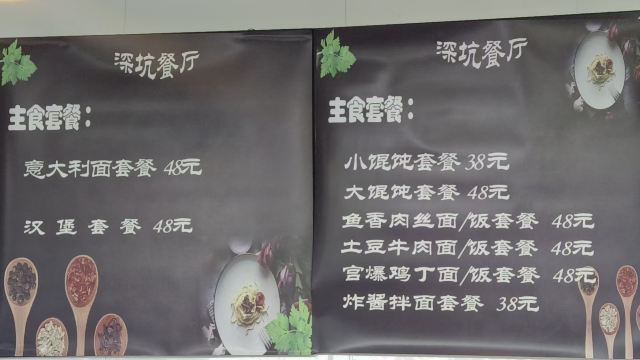 深坑餐厅
主食套餐：
意大利面套餐 48元
汉堡套餐 48元
深坑餐厅
主食套餐：
小馄饨套餐 38元
大馄饨套餐 48元
鱼香肉丝面/饭套餐 48元
土豆牛肉面/饭套餐 48元
宫爆鸡丁面/饭套餐 48元
炸酱拌面套餐 38元